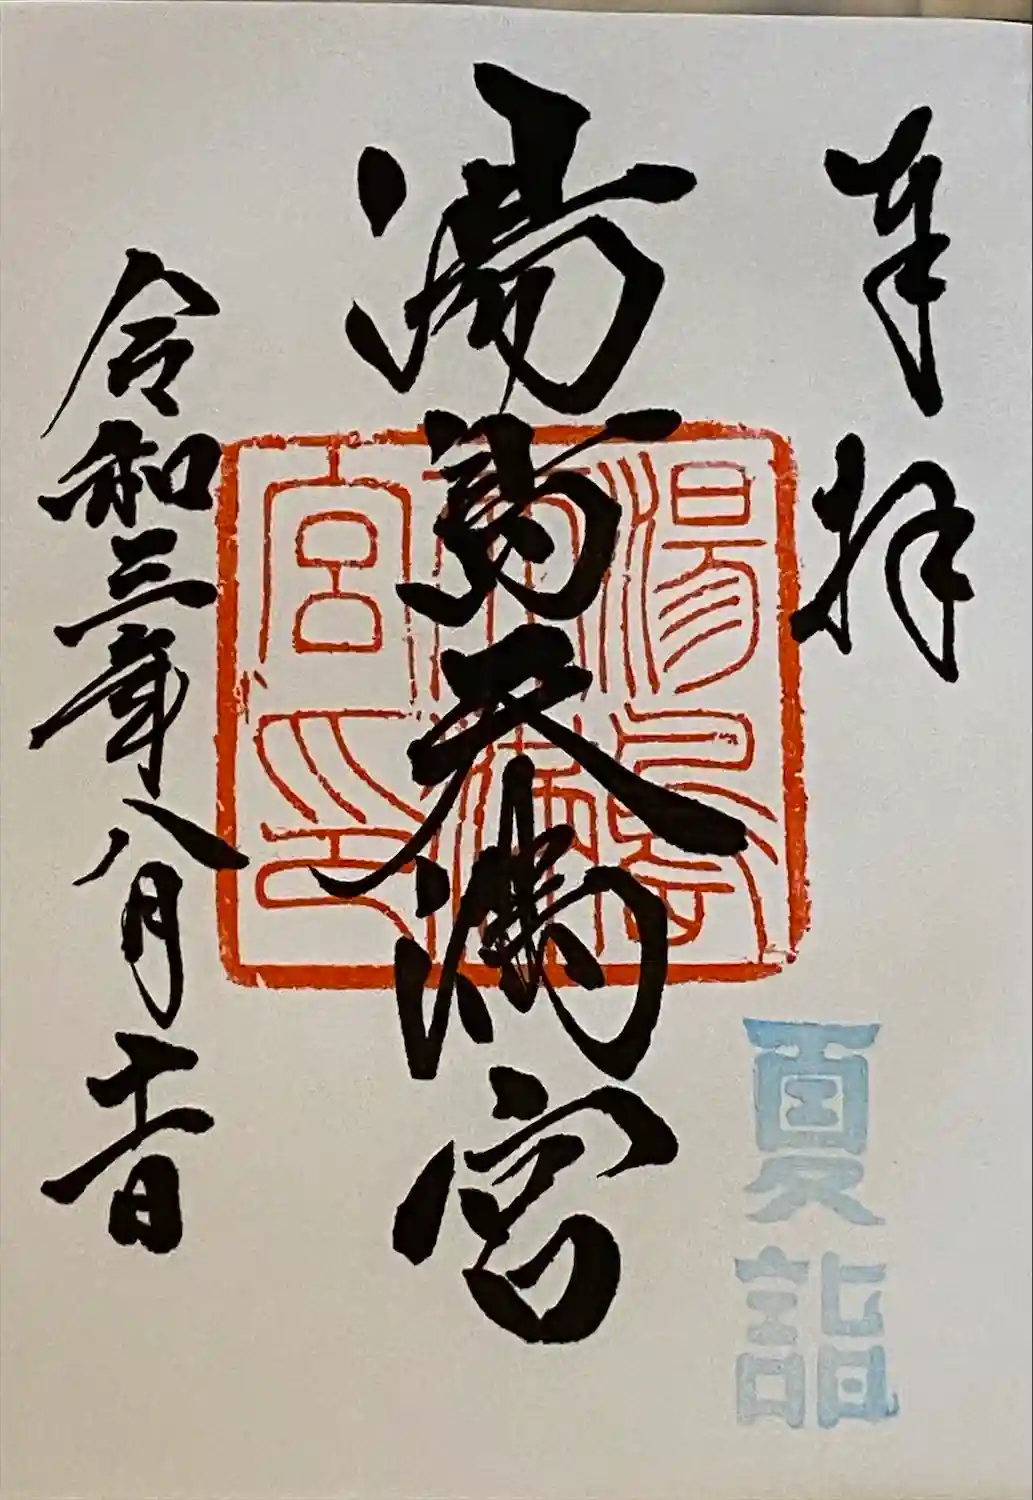 奉拝
夏詣
湯島天満宮
湯島天満宮印
令和三年八月十一日